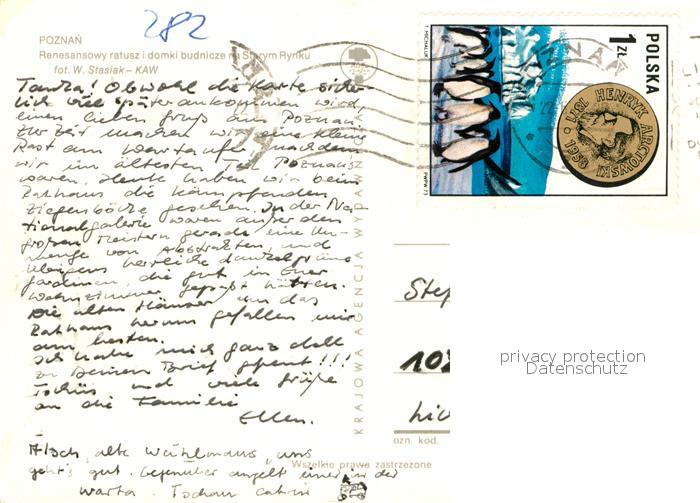 282
POZNAŃ
Renesansowy ratusz i domki budnicze na Starym Rynku
fot. W. Stasiak – KAW
Obwohl die Karte sicher-
lich viel später ankommen wird,
einen lieben Gruß aus Poznań
Zur Zeit machen wir eine kleine
Rast am Wartaufer, nachdem
wir im ältesten Teil Poznańs
waren. Heute haben wir beim
Rathaus die kämpfenden
Ziegenböcke gesehen. In der Na-
tionalgalerie waren außer den
großen Meistern gerade eine Un-
menge von Abstrakten, und
übrigens herrliche dunkelgrüne
Gardinen, die gut in Euer
Wohnzimmer gepaßt hätten.
Die alten Häuser um das
Rathaus herum gefallen mir
am besten.
Ich habe mich ganz doll
zu Deinem Brief gefreut!!!
Tschüs und viele Grüße
an die Familie
Ellen.
alte Wühlmaus, uns
geht's gut. Gegenüber angelt einer in der
Warta.
KRAJOWA AGENCJA WYDAWNICZA
Wszelkie prawa zastrzeżone
T. MICHALUK
PWPW 73
1 ZŁ
POLSKA
HENRYK ARCTOWSKI
1871
1958
Step
102
Lic
ozn. kod.
privacy protection
Datenschutz